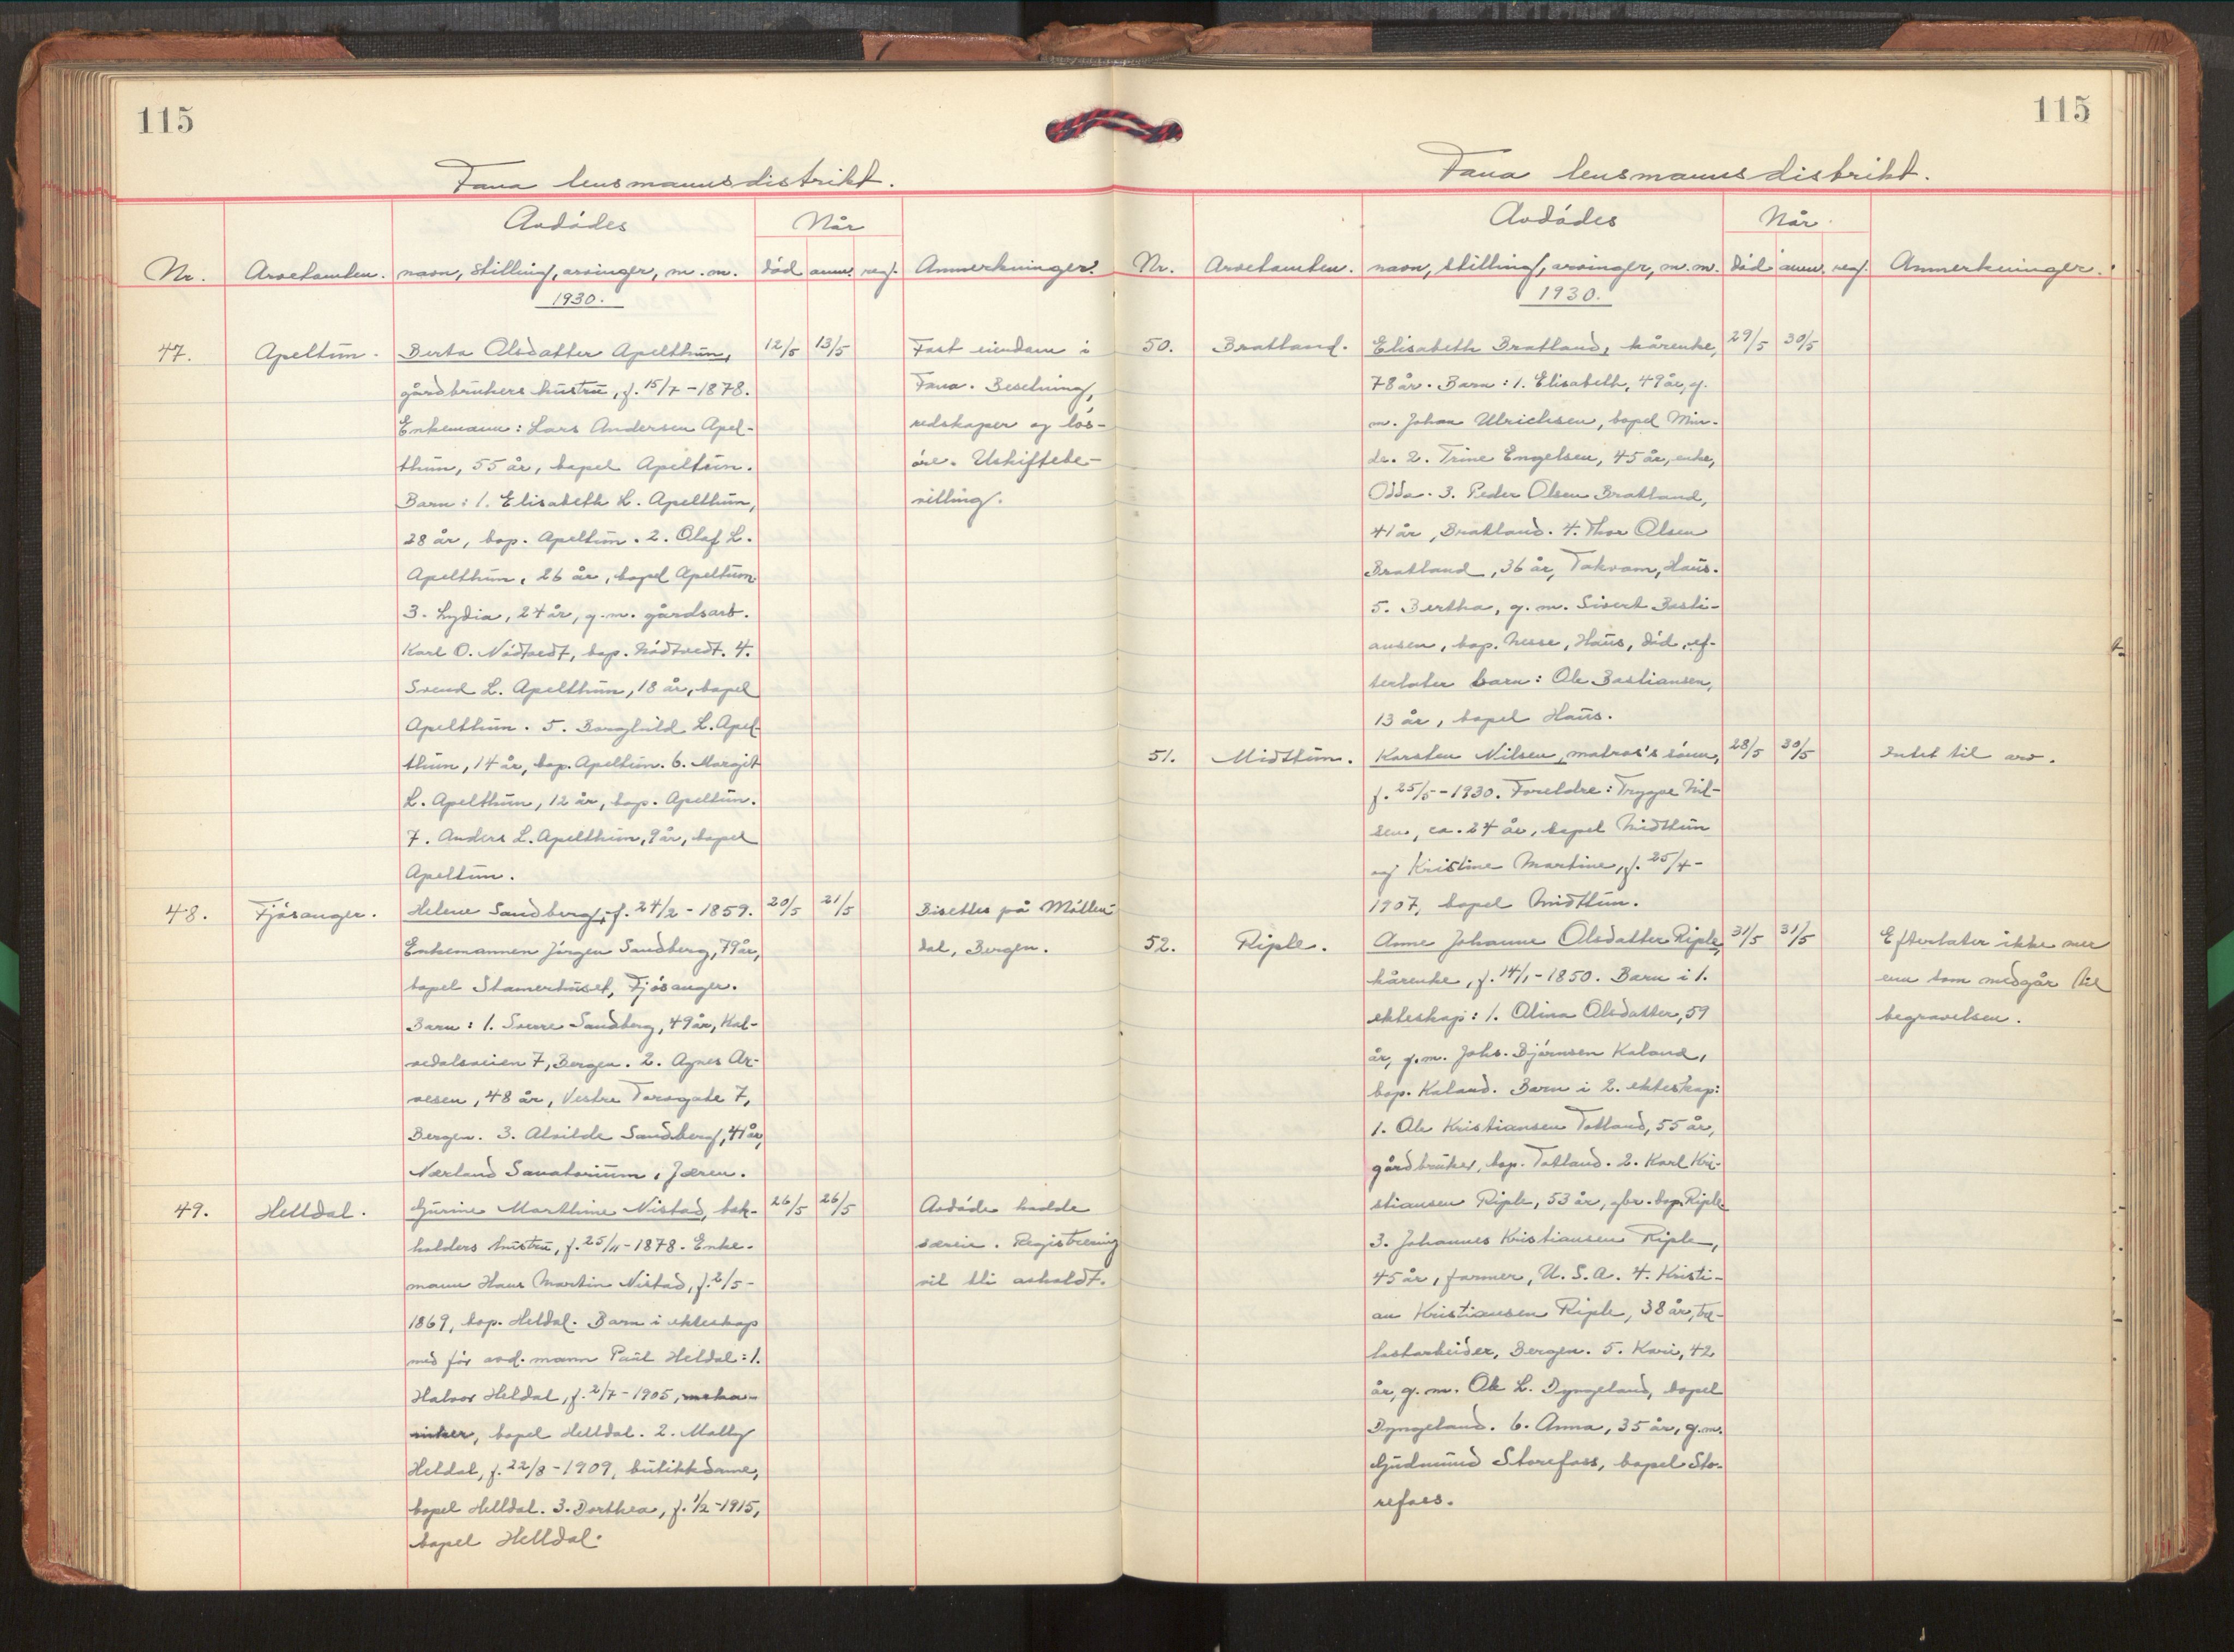 115
Fana lensmannsdistrikt.
Avdødes
Når
Nr. Arvetomten. navn, stilling, arvinger, m. m. død anm. reg. Anmerkninger.
1930.
47. Apeltun. Berta Olsdatter Apelthun, 12/5 13/5 Fast eiendom i
gårdbrukers hustru, f. 15/7 - 1878. Fana. Besetning,
Enkemann: Lars Andersen Apel- redskaper og løs-
thun, 55 år, bopel Apeltun. øre. Uskiftebe-
Barn: 1. Elisabeth L. Apelthun, villing.
28 år, bop. Apeltun. 2. Olaf L.
Apelthun, 26 år, bopel Apeltun
3. Lydia, 24 år, g. m. gårdsarb.
Karl O. Nødtvedt, bop. Nødtvedt. 4.
Svend L. Apelthun, 18 år, bopel
Apelthun. 5. Borghild L. Apel-
thun, 14 år, bop. Apeltun. 6. Margit
L. Apelthun, 12 år, bop. Apeltun.
7. Anders L. Apelthun, 9 år, bopel
Apeltun.
48. Fjøsanger. Helene Sandberg, f. 24/2 - 1859. 20/5 21/5 Bisettes på Møllen-
Enkemannen Jørgen Sandberg, 79 år, dal, Bergen.
bopel Stamerhuset, Fjøsanger.
Barn: 1. Sverre Sandberg, 49 år, Kal-
vedalsveien 7, Bergen. 2. Agnes Ar-
vesen, 48 år, Vestre Torvgate 7,
Bergen. 3. Alvilde Sandberg, 41 år,
Nærland Sanatorium, Jæren.
49. Helldal. Gurine Marthine Nistad, bok- 26/5 26/5 Avdøde hadde
holders hustru, f. 25/11 - 1878. Enke- særeie. Registrering
mann Hans Martin Nistad, f. 2/5 - vil bli avholdt.
1869, bop. Heldal. Barn i ekteskap
med før avd. mann Paul Heldal: 1.
Halvor Heldal, f. 2/7 - 1905, meka-
niker, bopel Helldal. 2. Molly
Heldal, f. 22/8 - 1909, butikkdame,
bopel Helldal. 3. Dorthea, f. 1/2 - 1915,
bopel Helldal.
115
Fana lensmannsdistrikt.
Avdødes
Når
Nr. Arvetomten. navn, stilling, arvinger, m. m. død anm. reg. Anmerkninger.
1930.
50. Bratland. Elisabeth Bratland, kårenke, 29/5 30/5
78 år. Barn: 1. Elisabeth, 49 år, g.
m. Johan Ulrichsen, bopel Min-
de. 2. Trine Engelsen, 45 år, enke,
Odda. 3. Peder Olsen Bratland,
41 år, Bratland. 4. Thor Olsen
Bratland, 36 år, Takvam, Haus.
5. Bertha, g. m. Sivert Basti-
ansen, bop. Nesse, Haus, død, ef-
terlater barn: Ole Bastiansen,
13 år, bopel Haus.
51. Midttun. Karsten Nilsen, matros's sønn, 28/5 30/5 Intet til arv.
f. 25/5 - 1930. Foreldre: Trygve Nil-
sen, ca. 24 år, bopel Midttun
og Kristine Martine, f. 25/4 -
1907, bopel Midttun.
52. Riple. Anne Johanne Olsdatter Riple, 31/5 31/5 Efterlater ikke mer
kårenke, f. 14/1 - 1850. Barn i 1. enn som medgår til
ekteskap: 1. Olina Olsdatter, 59 begravelsen.
år, g. m. Johs. Bjørnsen Kaland,
bop. Kaland. Barn i 2. ekteskap:
1. Ole Kristiansen Totland, 55 år,
gårdbruker, bop. Totland. 2. Karl Kri-
stiansen Riple, 53 år, gbr. bop. Riple
3. Johannes Kristiansen Riple,
45 år, farmer, U. S. A. 4. Kristi-
an Kristiansen Riple, 38 år, tre-
lastarbeider, Bergen. 5. Kari, 42
år, g. m. Ole L. Dyngeland, bopel
Dyngeland. 6. Anna, 35 år, g. m.
Gudmund Storefoss, bopel Sto-
refoss.